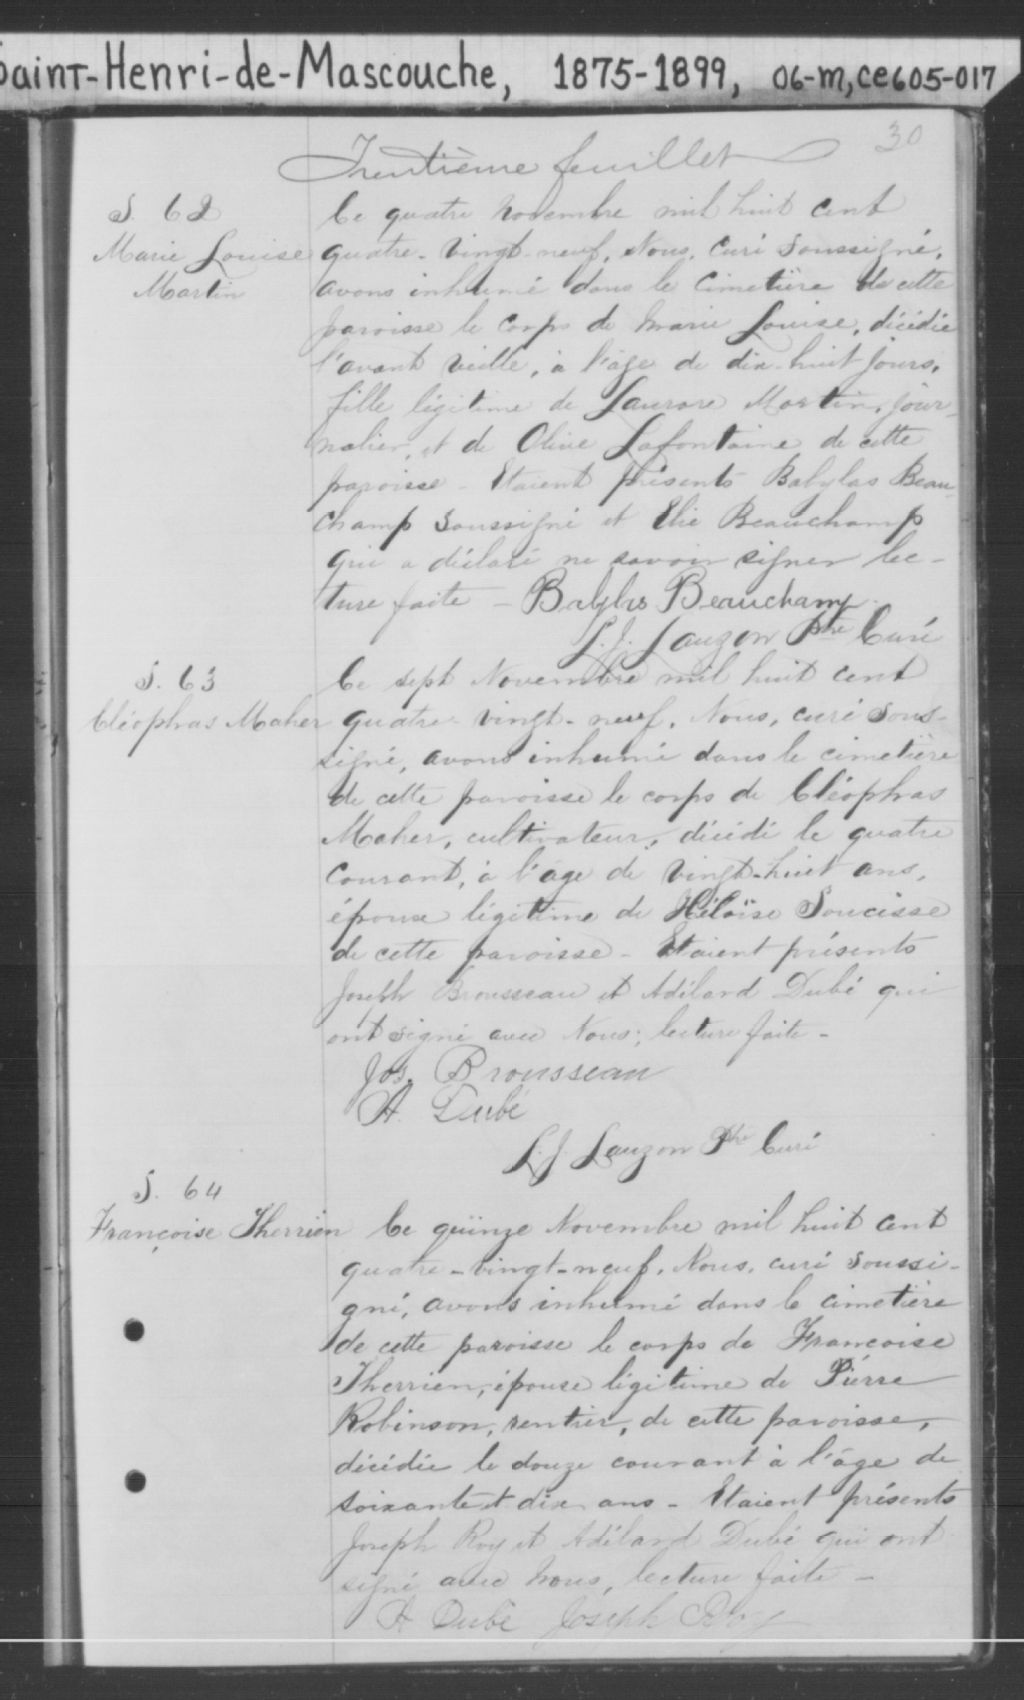 Saint-Henri-de-Mascouche, 1875-1899, 06-m,ce605-017
30
Trentième feuillet
S. 62
Marie Louise
Martin
Ce quatre novembre mil huit cent
quatre-vingt-neuf, Nous, Curé soussigné,
avons inhumé dans le cimetière de cette
paroisse le corps de Marie Louise, décédée
l'avant veille, à l'âge de dix-huit jours,
fille légitime de Martin, jour-
nalier, et de Olive Lafontaine de cette
paroisse - Etaient présents Babylas Beau-
champ soussigné et Elie Beauchamp
qui a déclaré ne savoir signer lec-
ture faite - Babylas Beauchamp
L.J. Lauzon Ptre Curé
S. 63
Cléophas Maher
Ce sept Novembre mil huit cent
quatre-vingt-neuf, Nous, curé sous-
signé, avons inhumé dans le cimetière
de cette paroisse le corps de Cléophas
Maher, cultivateur, décédé le quatre
courant, à l'âge de vingt-huit ans,
époux légitime de Héloïse Soucisse
de cette paroisse - Etaient présents
Joseph Brousseau et Adélard Dubé qui
ont signé avec Nous; lecture faite -
Jos. Brousseau
A. Dubé
L.J. Lauzon Ptre Curé
S. 64
Françoise Therrien
Ce quinze Novembre mil huit cent
quatre-vingt-neuf, Nous, curé soussi-
gné, avons inhumé dans le cimetière
de cette paroisse le corps de Francoise
Therrien, épouse légitime de Pierre
Robinson, rentier, de cette paroisse,
décédée le douze courant à l'âge de
soixante et dix ans - Etaient présents
Joseph Roy et Adélard Dubé qui ont
signé avec Nous, lecture faite -
A Dubé Joseph Roy